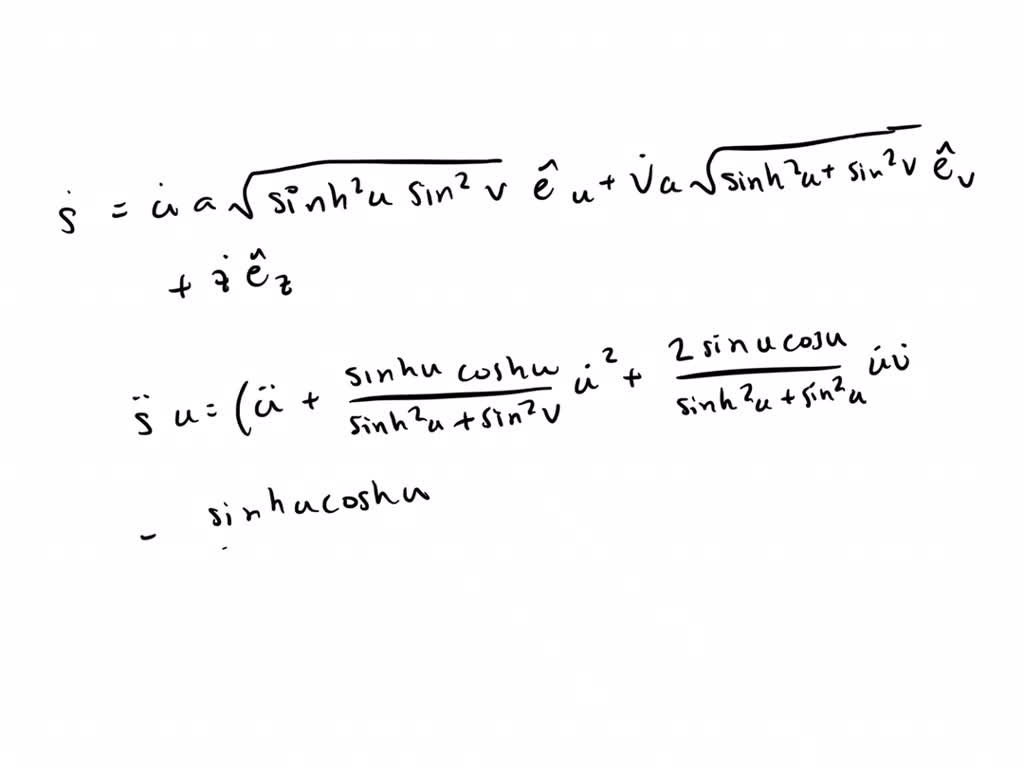 ṡ = u̇ a √(sinh²u sin²v) ê_u + v̇a √(sinh²u + sin²v) ê_v
+ ż ê_z
s̈ u = (ü + (sinhu coshu)/(sinh²u + sin²v) u̇² + (2 sinu cosu)/(sinh²u + sin²u) u̇v̇
- sinhucoshu